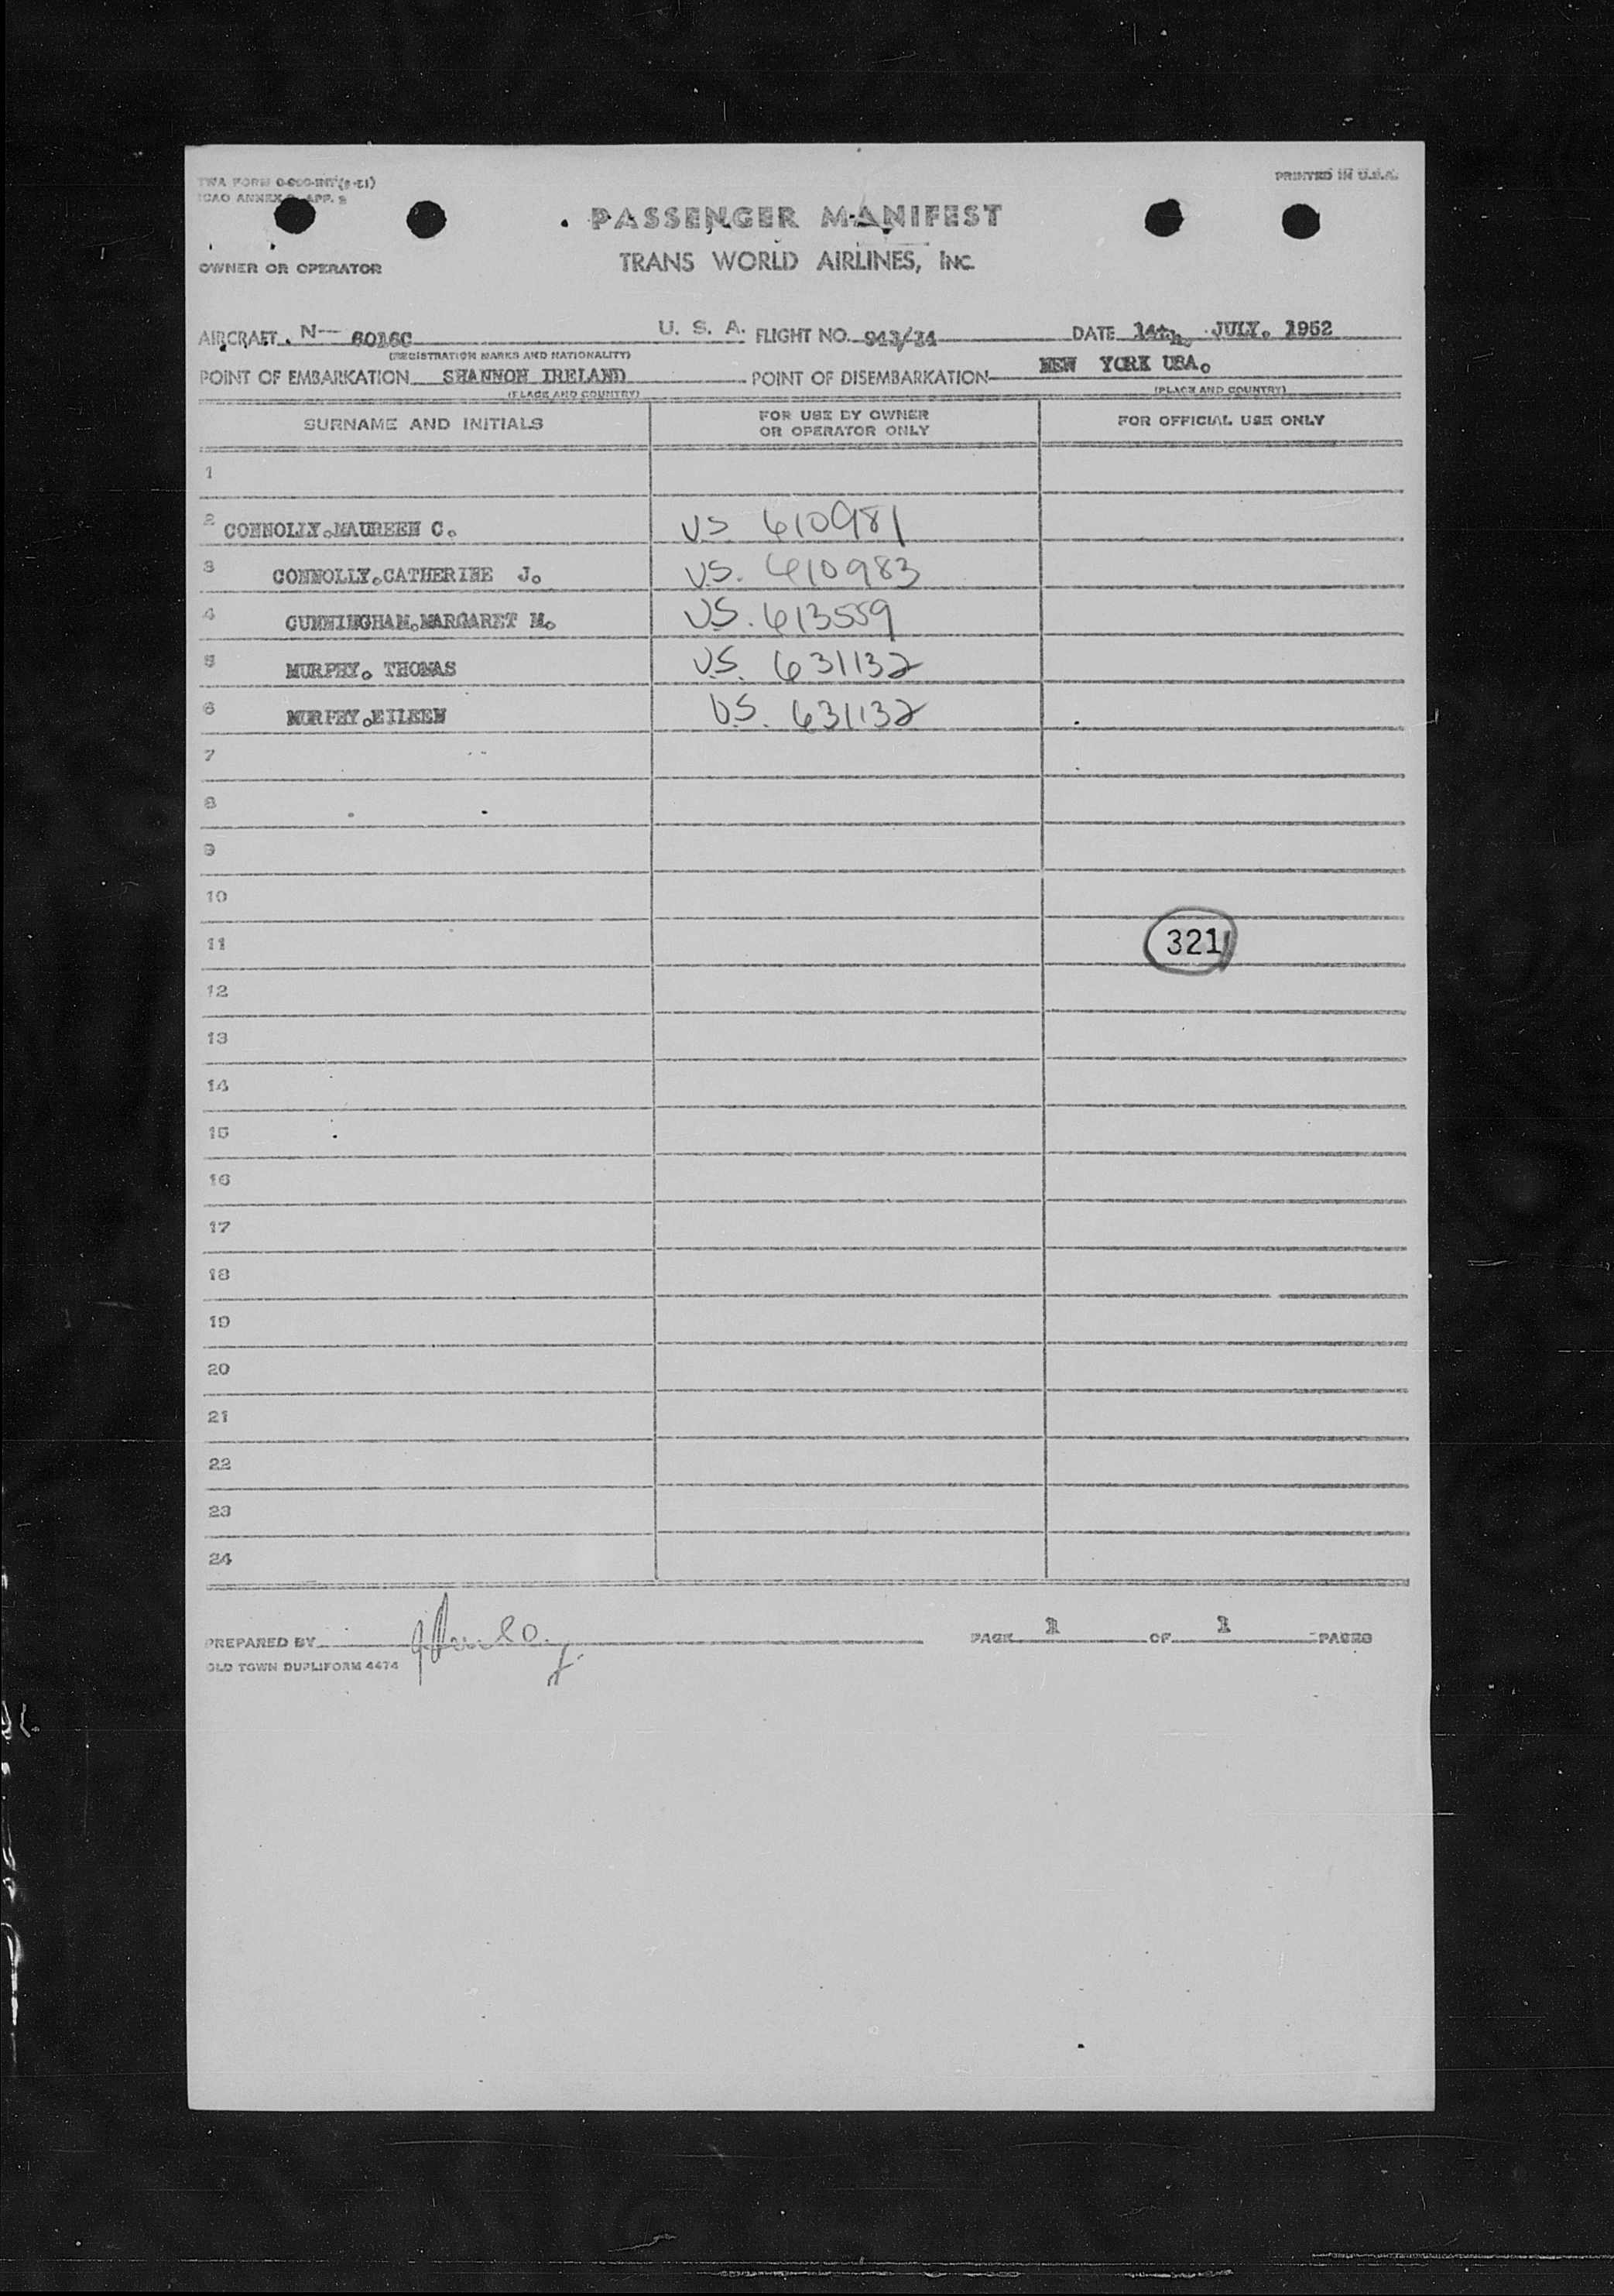 TWA FORM 0-800-INT (2-51)
PRINTED IN U.S.A.
ICAO ANNEX 9, APP. 2
PASSENGER MANIFEST
OWNER OR OPERATOR
TRANS WORLD AIRLINES, INC.
AIRCRAFT N-- 6016C U. S. A. FLIGHT NO. 943/14 DATE 14th. JULY. 1952
(REGISTRATION MARKS AND NATIONALITY)
POINT OF EMBARKATION SHANNON IRELAND POINT OF DISEMBARKATION NEW YORK USA.
(PLACE AND COUNTRY) (PLACE AND COUNTRY)
SURNAME AND INITIALS FOR USE BY OWNER OR OPERATOR ONLY FOR OFFICIAL USE ONLY
1
2 CONNOLLY.MAUREEN C. US 610981
3 CONNOLLY.CATHERINE J. U.S. 610983
4 CUNNINGHAM.MARGARET M. US. 613559
5 MURPHY. THOMAS U.S. 631132
6 MURPHY.EILEEN U.S. 631132
7
8
9
10
11 321
12
13
14
15
16
17
18
19
20
21
22
23
24
PREPARED BY PAGE 1 OF 1 PAGES
OLD TOWN DUPLIFORM 4474